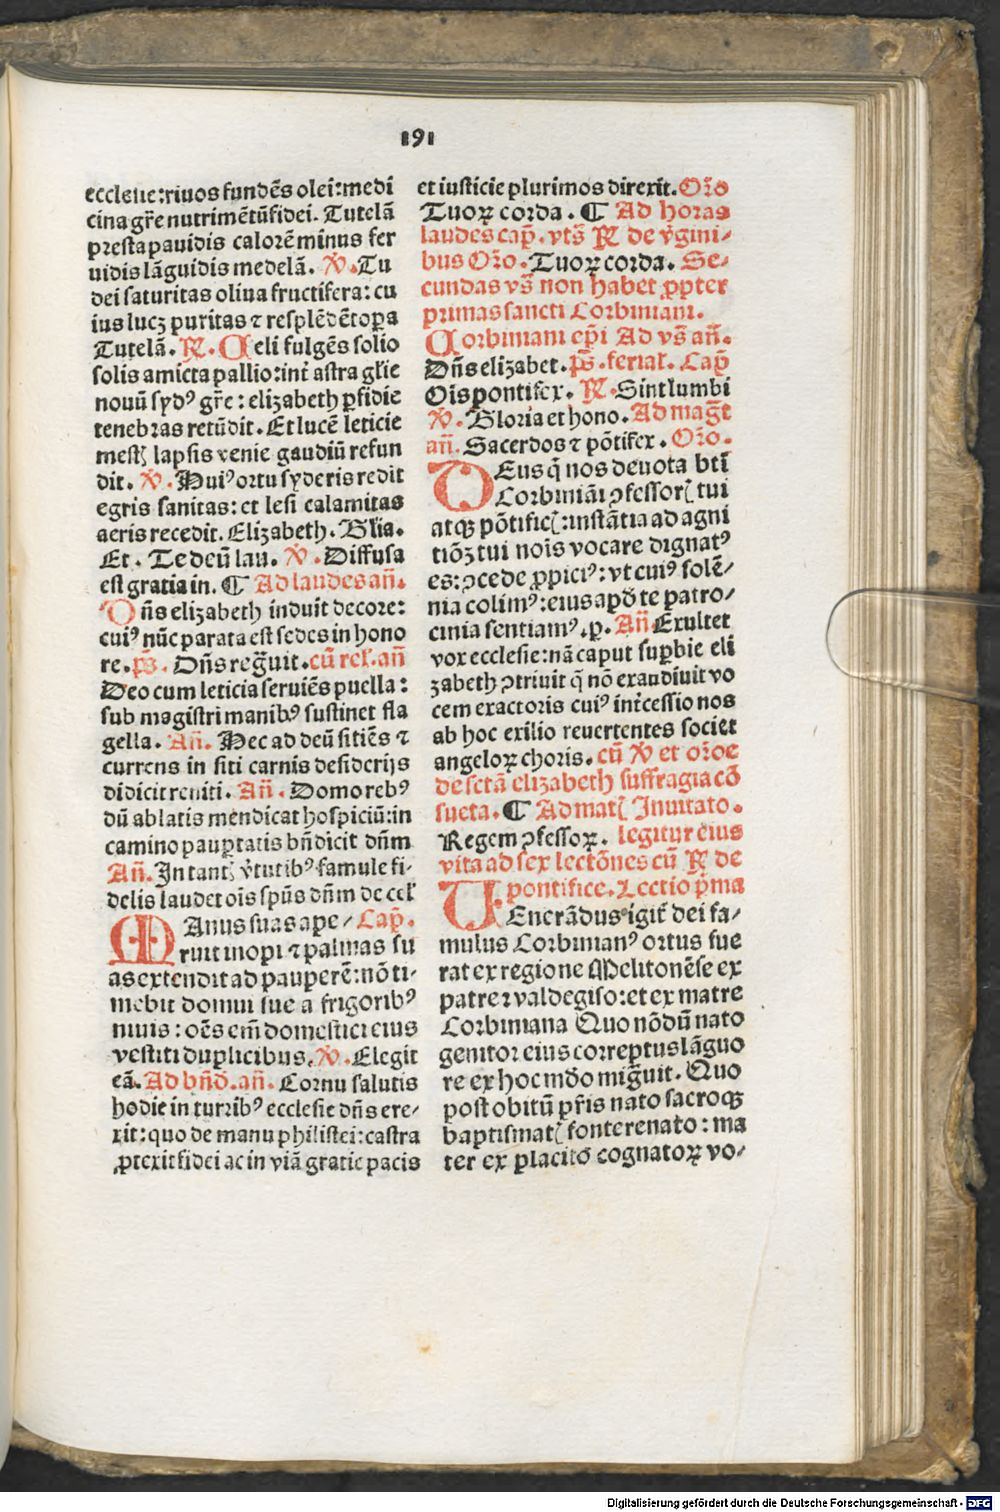 191
ecclesie:riuos fundēs olei:medi
cina gr̄e nutrimētū fidei. Tutelā
presta pauidis calorē minus fer
uidis lāguidis medelā. V̇. Tu
dei saturitas oliua fructifera: cu
ius lucꝫ puritas ⁊ resplēdēt oꝑa
Tutelā. ℟. Celi fulgēs solio
solis amicta pallio:int̄ astra gl̄ie
nouū sydꝰ gr̄e: elizabeth ꝑfidie
tenebras retūdit. Et lucē leticie
mestꝭ lapsis venie gaudiū refun
dit. V̇. Huiꝰ ortu syderis redit
egris sanitas: et lesi calamitas
aeris recedit. Elizabeth. Gl̄ia.
Et. Te deū lau. V̇. Diffusa
est gratia in. ¶ Ad laudes an̄.
Dn̄s elizabeth induit decore:
cuiꝰ nūc parata est sedes in hono
re. ps̄. Dn̄s regͣuit. cū rel̓. an̄
Deo cum leticia seruiēs puella:
sub magistri manibꝰ sustinet fla
gella. An̄. Hec ad deū sitiēs ⁊
currens in siti carnis desiderijs
didicit reniti. An̄. Domo rebꝰ
dū ablatis mendicat hospiciū:in
camino pauꝑtatis bn̄dicit dn̄m
An̄. In tantꝭ v̓tutibꝰ famule fi-
delis laudet ois̄ spūs dn̄m de cel̓
MAnus suas ape⸗ Cap̄.
ruit inopi ⁊ palmas su
as extendit ad pauperē:nō ti-
mebit domui sue a frigoribꝰ
niuis: oēs em̄ domestici eius
vestiti duplicibus. V̇. Elegit
eā. Ad bn̄d̄. an̄. Cornu salutis
hodie in turribꝰ ecclesie dn̄s ere⸗
xit:quo de manu philistei:castra
ꝓtexit fidei ac in viā gratie pacis
et iusticie plurimos direxit. Or̄o
Tuoꝝ corda. ¶ Ad horas
laudes cap̄. vts̄ ℟ de v̓gini⸗
bus Or̄o. Tuoꝝ corda. Se⸗
cundas vs̄ non habet ꝓpter
primas sancti Corbiniani.
Corbiniani ep̄i Ad vs̄ an̄.
Dn̄s elizabet. ps̄. ferial. Cap̄
Ois̄ pontifex. ℟. Sint lumbi
V̇. Gloria et hono. Ad magt̄
an̄. Sacerdos ⁊ pōtifex. Or̄o.
DEus q̄ nos deuota bt̄i
Corbiniāi ꝯfessorꝭ tui
atqꝫ pōtificꝭ:instātia ad agni
tiōꝫ tui nois̄ vocare dignatꝰ
es:ꝯcede ꝓpiciꝰ:vt cuiꝰ solē⸗
nia colimꝰ:eius apd̓ te patro⸗
cinia sentiamꝰ. ꝑ. An̄ Exultet
vox ecclesie:nā caput suꝑbie eli
zabeth ꝯtriuit q̄ nō exaudiuit vo
cem exactoris cuiꝰ int̄cessio nos
ab hoc exilio reuertentes societ
angeloꝝ choris. cū V̇ et or̄oe
de sctā elizabeth suffragia cō
sueta. ¶ Ad matꝭ Inuitato.
Regem ꝯfessoꝝ. legitur eius
vita ad sex lectōnes cū ℟ de
pontifice. Lectio p̓ma
VEnerādus igit̓ dei fa⸗
mulus Corbinianꝰ ortus fue
rat ex regione Melitonēse ex
patre valdegiso:et ex matre
Corbiniana Quo nōdū nato
genitor eius correptus lāguo
re ex hoc md̄o migͣuit. Quo
post obitū pr̄is nato sacroqꝫ
baptismatꝭ fonte renato: ma
ter ex placito cognatoꝝ vo⸗
Digitalisierung gefördert durch die Deutsche Forschungsgemeinschaft - DFG